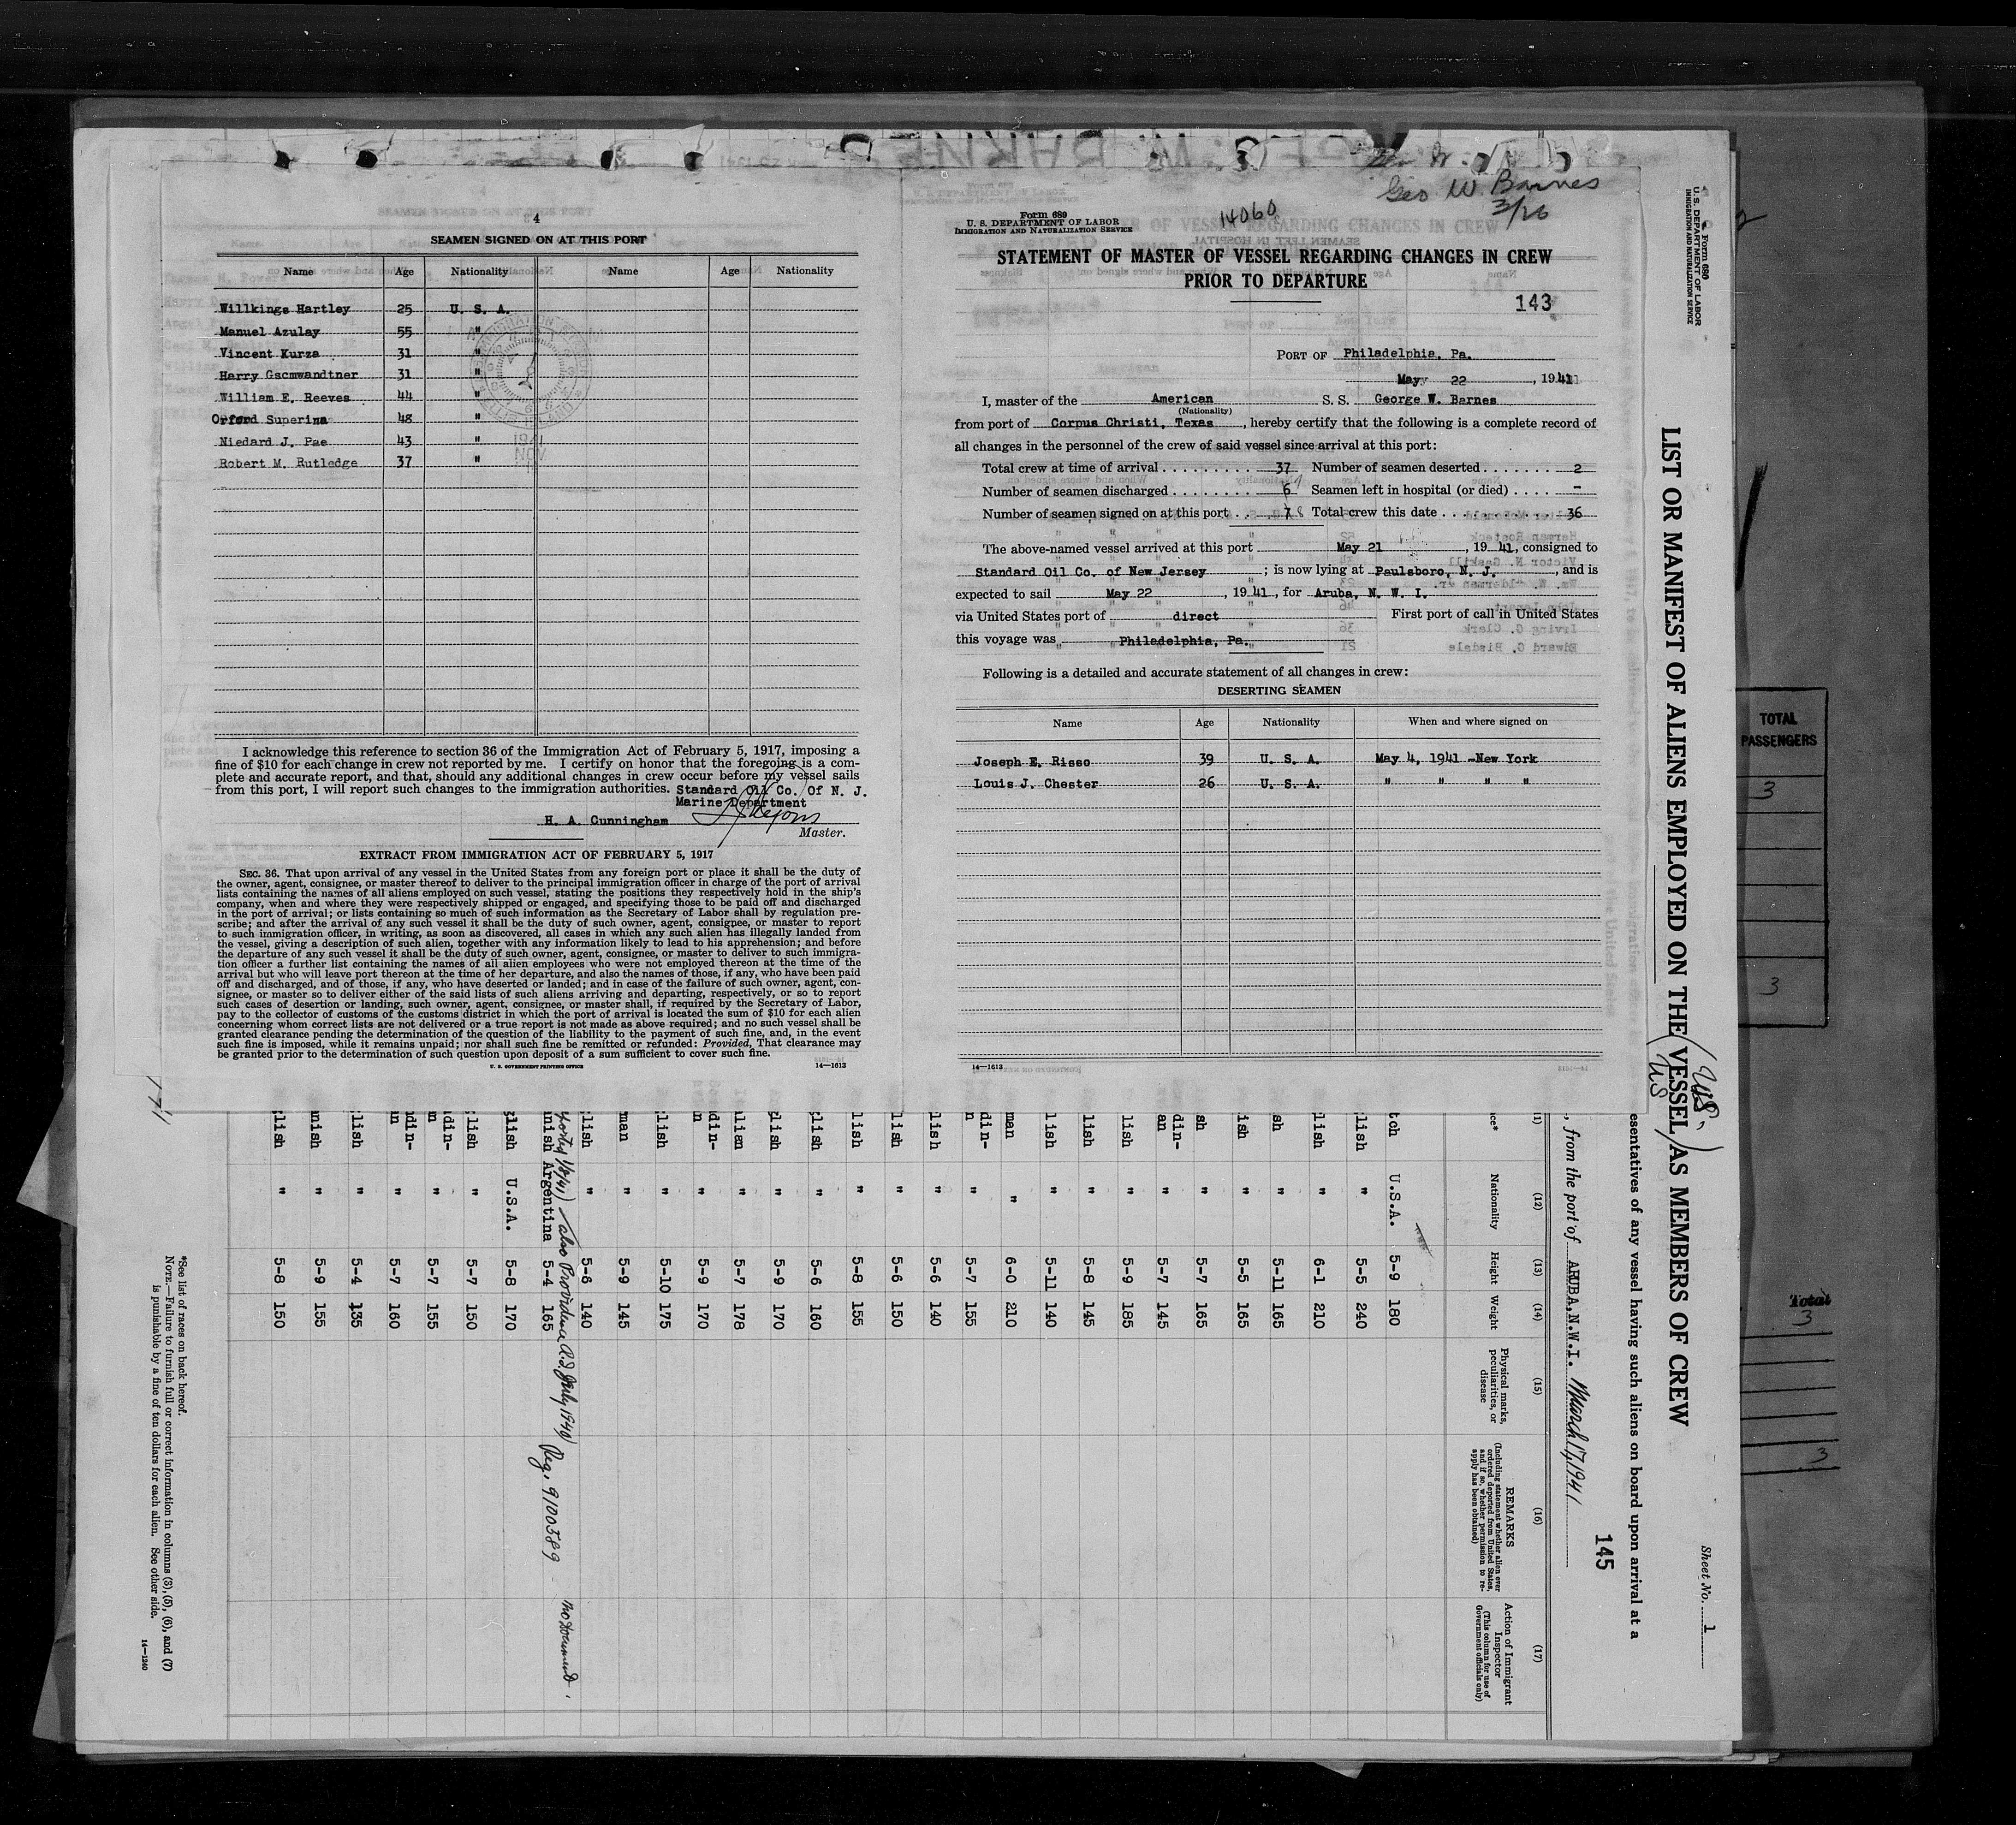 Geo W. Barnes
3/26
14060
4
SEAMEN SIGNED ON AT THIS PORT
Name Age Nationality Name Age Nationality
Willkings Hartley 25 U. S. A.
Manuel Azulay 55 "
Vincent Kurza 31 "
Harry Gscmwandtner 31 "
William E. Reeves 44 "
Orford Superina 48 "
Niedard J. Pae 43 "
Robert M. Rutledge 37 "
1941
NOV
I acknowledge this reference to section 36 of the Immigration Act of February 5, 1917, imposing a
fine of $10 for each change in crew not reported by me. I certify on honor that the foregoing is a com-
plete and accurate report, and that, should any additional changes in crew occur before my vessel sails
from this port, I will report such changes to the immigration authorities. Standard Oil Co. Of N. J.
Marine Department
H. A. Cunningham
Master.
EXTRACT FROM IMMIGRATION ACT OF FEBRUARY 5, 1917
SEC. 36. That upon arrival of any vessel in the United States from any foreign port or place it shall be the duty of
the owner, agent, consignee, or master thereof to deliver to the principal immigration officer in charge of the port of arrival
lists containing the names of all aliens employed on such vessel, stating the positions they respectively hold in the ship's
company, when and where they were respectively shipped or engaged, and specifying those to be paid off and discharged
in the port of arrival; or lists containing so much of such information as the Secretary of Labor shall by regulation pre-
scribe; and after the arrival of any such vessel it shall be the duty of such owner, agent, consignee, or master to report
to such immigration officer, in writing, as soon as discovered, all cases in which any such alien has illegally landed from
the vessel, giving a description of such alien, together with any information likely to lead to his apprehension; and before
the departure of any such vessel it shall be the duty of such owner, agent, consignee, or master to deliver to such immigra-
tion officer a further list containing the names of all alien employees who were not employed thereon at the time of the
arrival but who will leave port thereon at the time of her departure, and also the names of those, if any, who have been paid
off and discharged, and of those, if any, who have deserted or landed; and in case of the failure of such owner, agent, con-
signee, or master so to deliver either of the said lists of such aliens arriving and departing, respectively, or so to report
such cases of desertion or landing, such owner, agent, consignee, or master shall, if required by the Secretary of Labor,
pay to the collector of customs of the customs district in which the port of arrival is located the sum of $10 for each alien
concerning whom correct lists are not delivered or a true report is not made as above required; and no such vessel shall be
granted clearance pending the determination of the question of the liability to the payment of such fine, and, in the event
such fine is imposed, while it remains unpaid; nor shall such fine be remitted or refunded: Provided, That clearance may
be granted prior to the determination of such question upon deposit of a sum sufficient to cover such fine.
U. S. GOVERNMENT PRINTING OFFICE 14—1613
Form 689
U. S. DEPARTMENT OF LABOR
IMMIGRATION AND NATURALIZATION SERVICE
STATEMENT OF MASTER OF VESSEL REGARDING CHANGES IN CREW
PRIOR TO DEPARTURE
143
PORT OF Philadelphia, Pa.
May 22, 1941
I, master of the American S. S. George W. Barnes
(Nationality)
from port of Corpus Christi, Texas, hereby certify that the following is a complete record of
all changes in the personnel of the crew of said vessel since arrival at this port:
Total crew at time of arrival 37 Number of seamen deserted 2
Number of seamen discharged 6 Seamen left in hospital (or died) -
Number of seamen signed on at this port 7 8 Total crew this date 36
The above-named vessel arrived at this port May 21, 1941, consigned to
Standard Oil Co. of New Jersey; is now lying at Paulsboro, N. J., and is
expected to sail May 22, 1941, for Aruba, N. W. I.
via United States port of direct First port of call in United States
this voyage was Philadelphia, Pa.
Following is a detailed and accurate statement of all changes in crew:
DESERTING SEAMEN
Name Age Nationality When and where signed on
Joseph E. Risso 39 U. S. A. May 4, 1941 -New York
Louis J. Chester 26 U. S. A. " " " "
14—1613
Form 689
U. S. DEPARTMENT OF LABOR
IMMIGRATION AND NATURALIZATION SERVICE
Sheet No. 1
LIST OR MANIFEST OF ALIENS EMPLOYED ON THE VESSEL AS MEMBERS OF CREW
US
US.
esentatives of any vessel having such aliens on board upon arrival at a
145
, from the port of ARUBA, N.W.I. March 17, 1941
(12) (13) (14) (15) (16) (17)
Nationality Height Weight Physical marks, peculiarities, or disease
REMARKS
(Including statement whether alien ever ordered deported from United States, and if so, whether permission to re-apply has been obtained)
Action of Immigrant Inspector
(This column for use of Government officials only)
tch U.S.A. 5-9 180
lish " 5-5 240
lish " 6-1 210
sh " 5-11 165
ish " 5-5 165
sh " 5-7 165
din-
an " 5-7 145
lish " 5-9 185
lish " 5-8 145
lish " 5-11 140
man " 6-0 210
din-
n " 5-7 155
lish " 5-6 140
lish " 5-6 150
lish " 5-8 155
glish " 5-6 160
glish " 5-9 170
lian " 5-7 178
din-
n " 5-9 170
lish " 5-10 175
man " 5-9 145
lish " 5-6 140
also Providence R.I. July 1940) Reg. 9100589 no Document.
nish Argentina 5-4 165
glish U.S.A. 5-8 170
lish " 5-7 150
din-
n " 5-7 155
din-
n " 5-7 160
lish " 5-4 135
nish " 5-9 155
lish " 5-8 150
*See list of races on back hereof.
NOTE.—Failure to furnish full or correct information in columns (3), (5), (6), and (7)
is punishable by a fine of ten dollars for each alien. See other side.
14—1240
TOTAL
PASSENGERS
3
3
Total
3
3